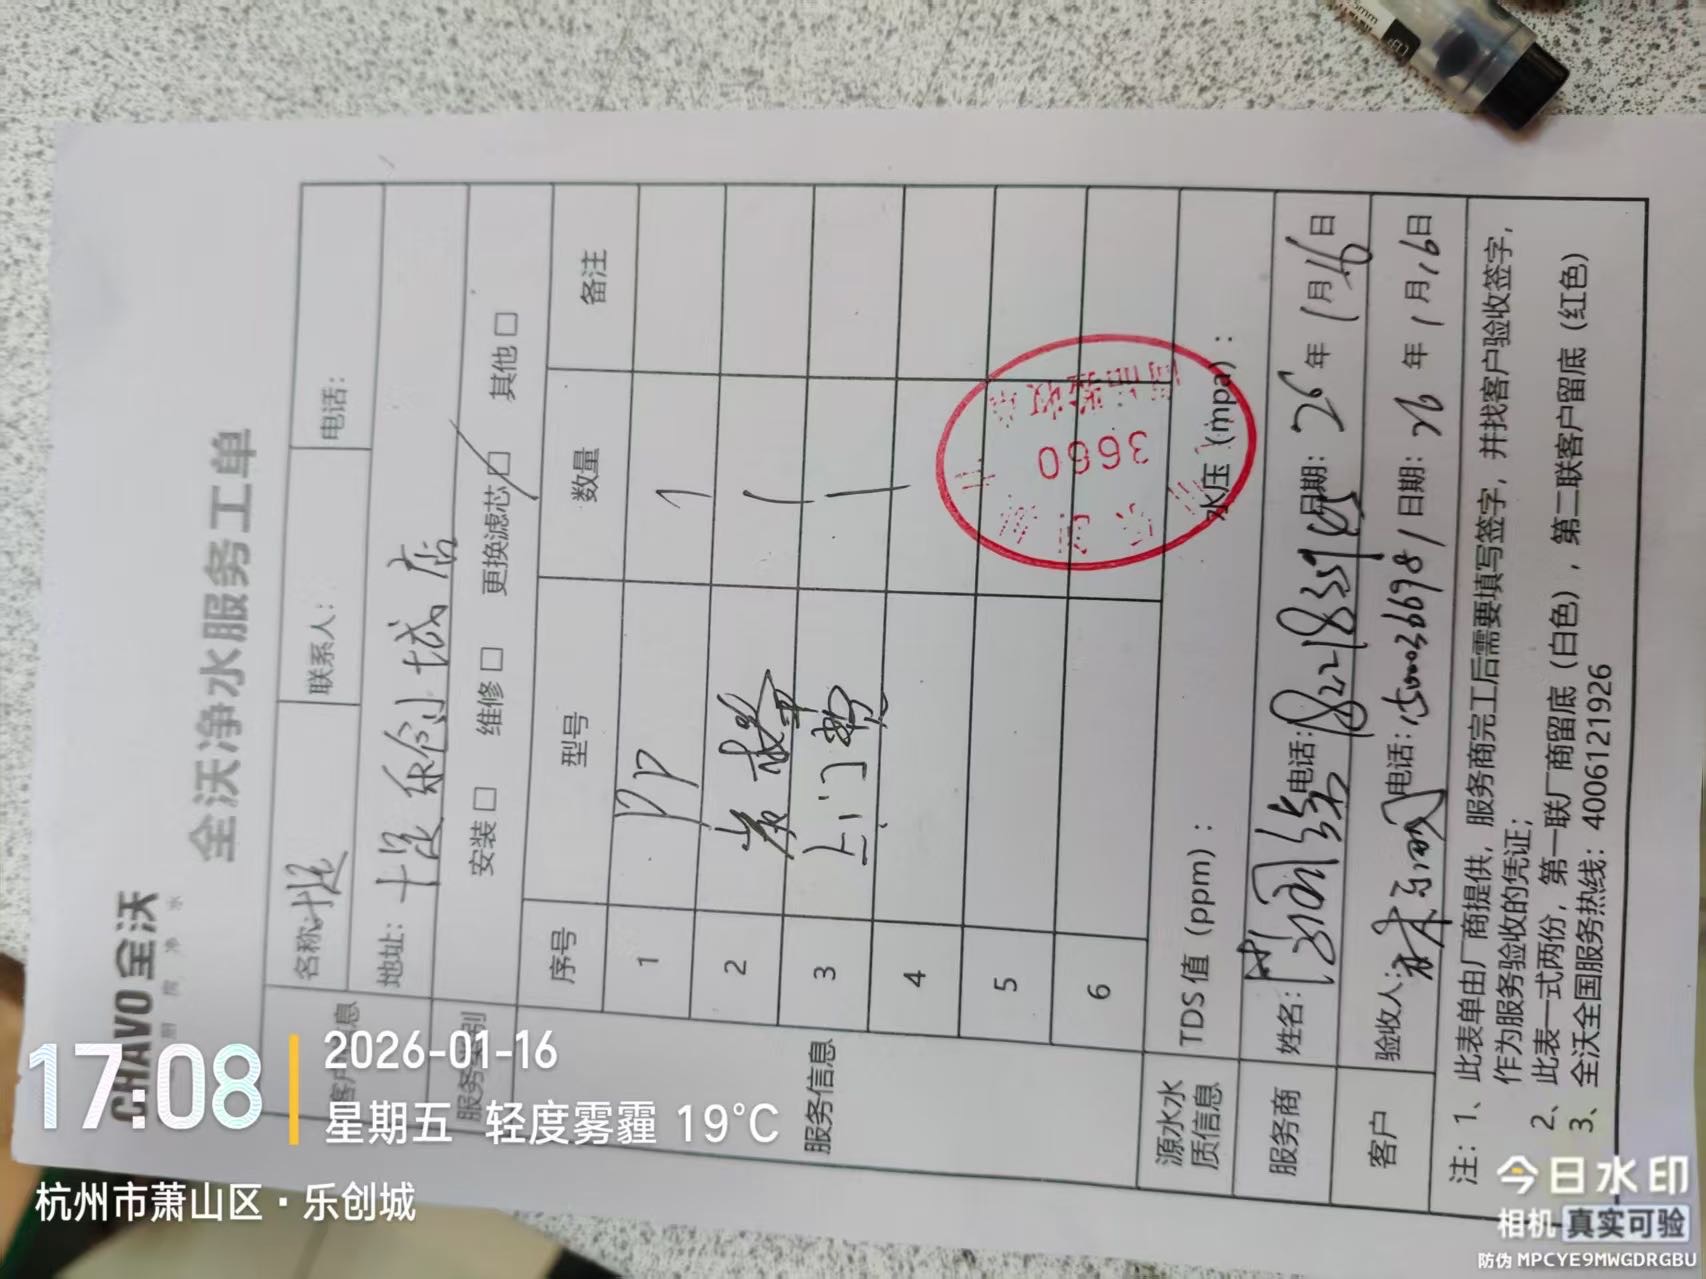 CHAVO 全沃
厨房净水
全沃净水服务工单
客户信息
名称
联系人：
电话：
地址：
城店
服务类别
安装□ 维修□ 更换滤芯□ 其他□
服务信息
序号 型号 数量 备注
1 PP 1
2 1
3 上门费 1
4
5
6
3660
源水水质信息
TDS值（ppm）：
水压（mpa）：
服务商
姓名：
电话：
日期：26年1月16日
客户
验收人：
电话：
日期：26年1月16日
注：1、此表单由厂商提供，服务商完工后需要填写签字，并找客户验收签字，
作为服务验收的凭证；
2、此表一式两份，第一联厂商留底（白色），第二联客户留底（红色）
3、全沃全国服务热线：4006121926
17:08
2026-01-16
星期五 轻度雾霾 19°C
杭州市萧山区·乐创城
今日水印
相机 真实可验
防伪 MPCYE9MWGDRGBU